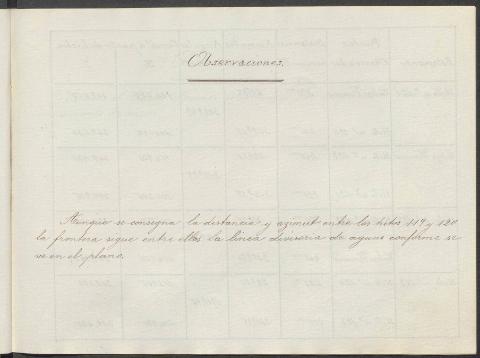 Observaciones.
Aunque se consigna la distancia y azimut entre los hitos 119 y 120
la frontera sigue entre ellos la linea divisoria de aguas conforme se
ve en el plano.